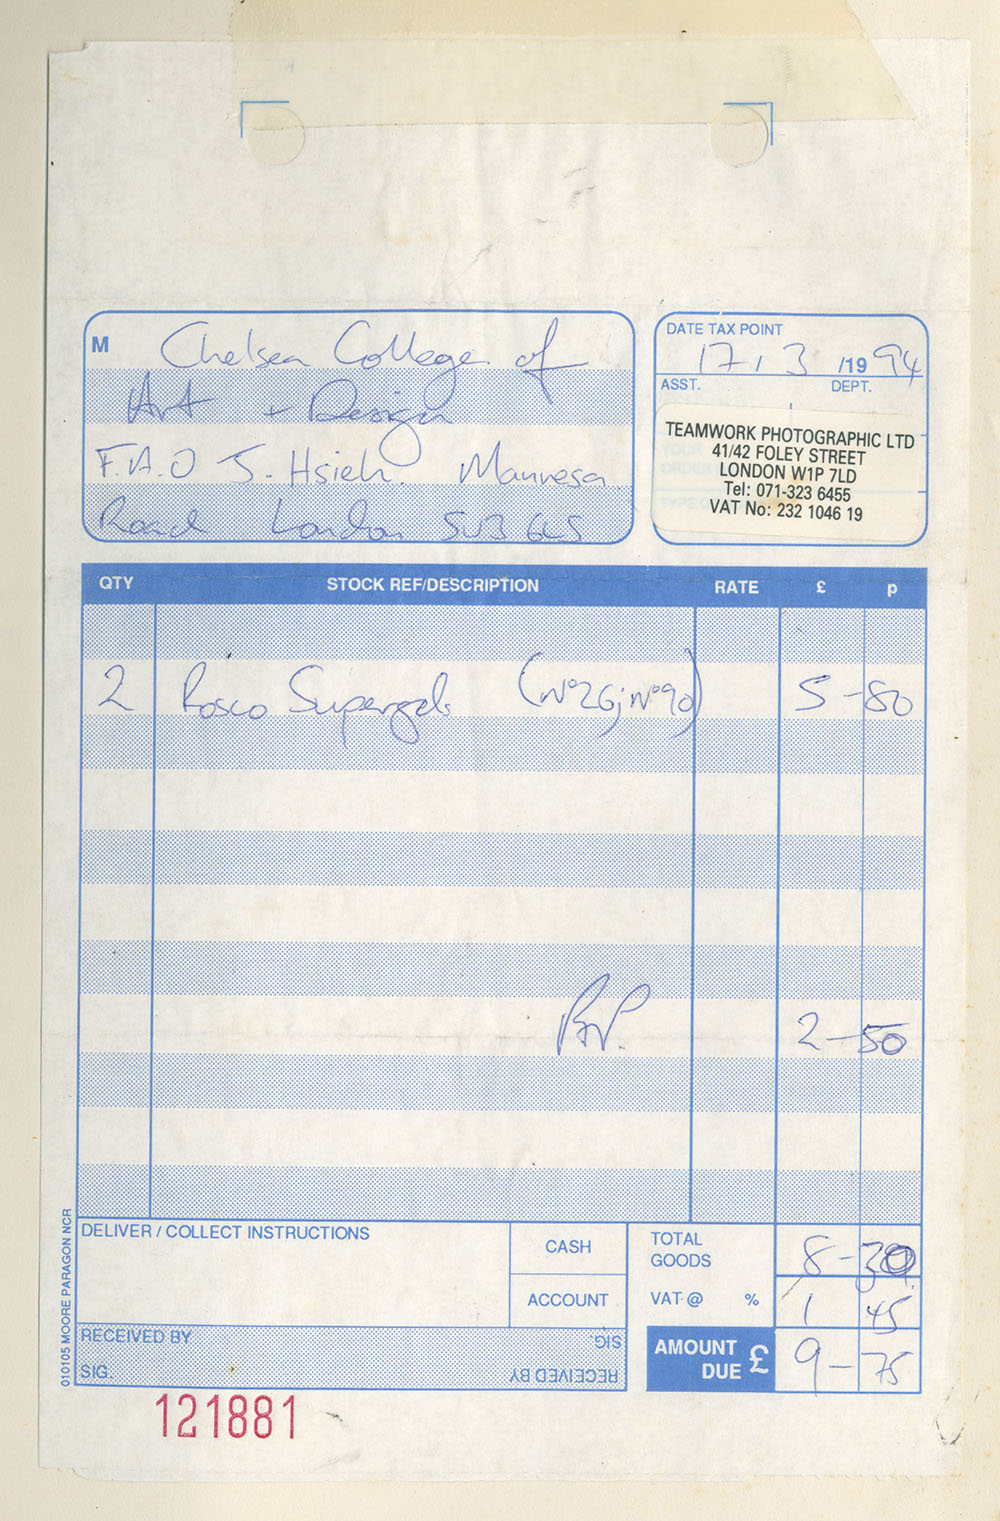 M Chelsea College of
Art + Design
F.A.O J. Hsieh. Manresa
Road London SW3 6LS
DATE TAX POINT
17 . 3 /19 94
ASST. DEPT.
TEAMWORK PHOTOGRAPHIC LTD
41/42 FOLEY STREET
LONDON W1P 7LD
Tel: 071-323 6455
VAT No: 232 1046 19
QTY STOCK REF/DESCRIPTION RATE £ p
2 Rosco Supergels (Nº26; Nº90) 5-80
2-50
DELIVER / COLLECT INSTRUCTIONS
CASH
ACCOUNT
TOTAL
GOODS 8-30
VAT @ % 1 45
AMOUNT
DUE £ 9-75
RECEIVED BY
SIG.
RECEIVED BY
SIG.
010105 MOORE PARAGON NCR
121881